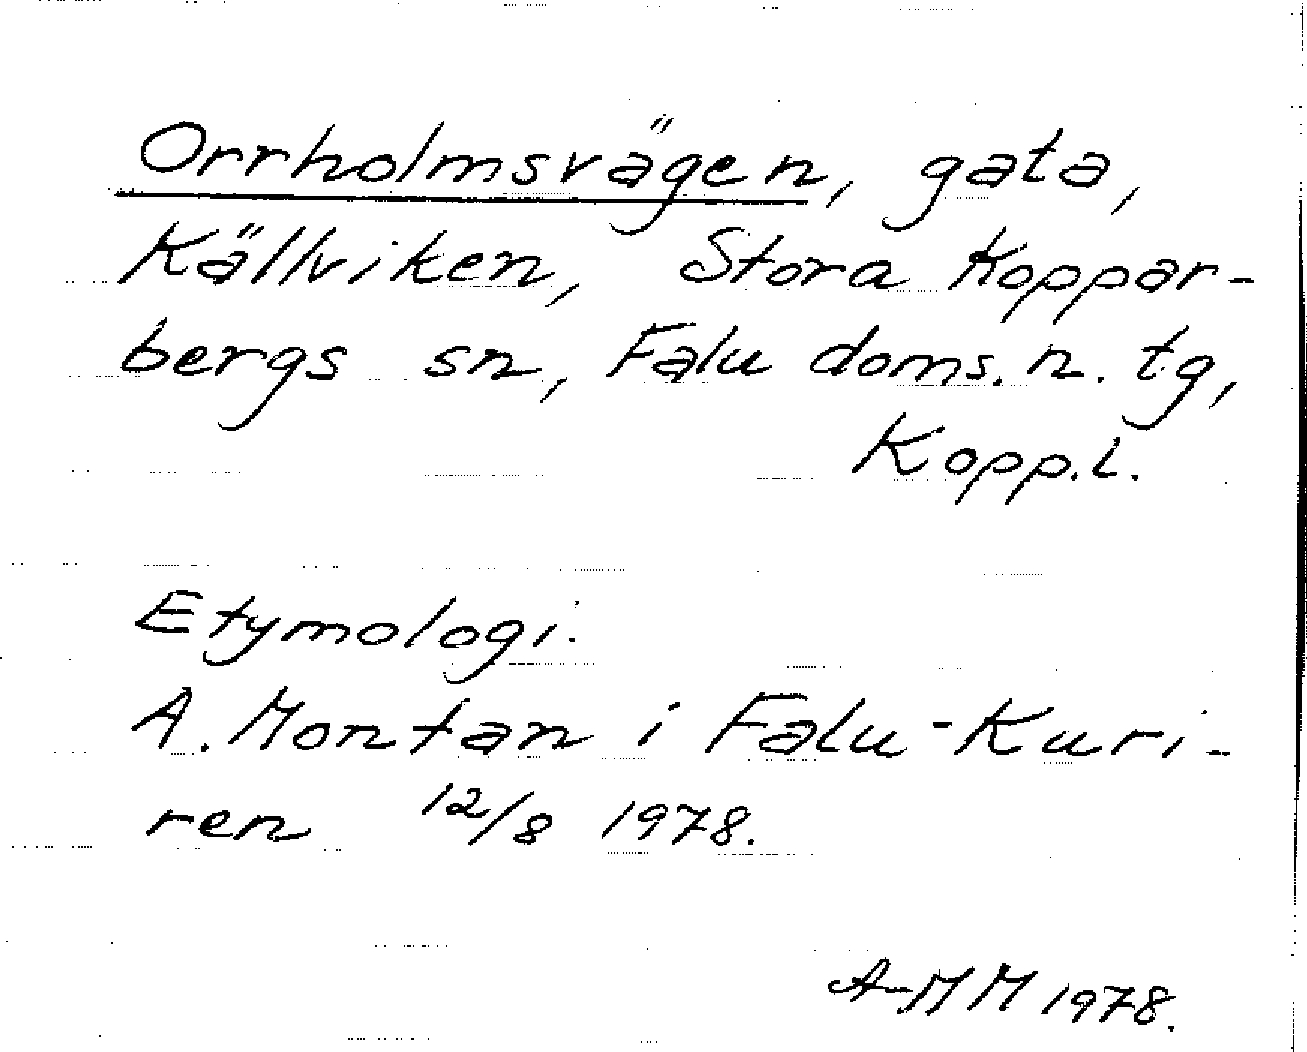 Orrholmsvägen, gata,
Källviken, Stora Koppar-
bergs sn, Falu doms. n. tg,
Kopp. l.
Etymologi.
A. Montan i Falu-Kuri-
ren 12/8 1978.
A-MM 1978.